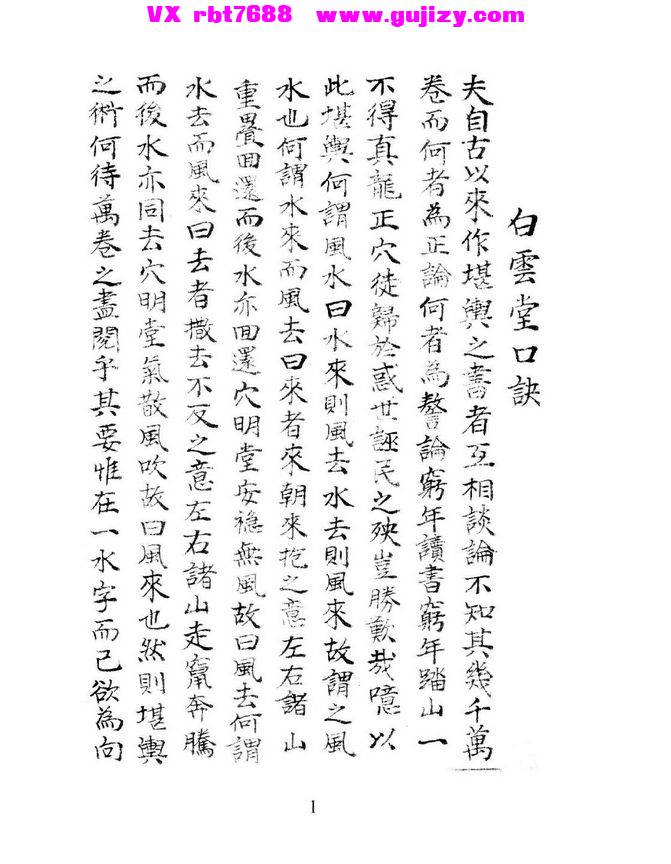 VX rbt7688 www.gujizy.com
白雲堂口訣
夫自古以來作堪輿之書者互相談論不知其幾千萬
卷而何者為正論何者為謷論窮年讀書窮年踏山一
不得真龍正穴徒歸於惑世誣民之殃豈勝歎哉噫以
此堪輿何謂風水曰水來則風去水去則風來故謂之風
水也何謂水來而風去曰來者來朝來抱之意左右諸山
重疊回還而後水亦回還穴明堂安穩無風故曰風去何謂
水去而風來曰去者撒去不反之意左右諸山走竄奔騰
而後水亦同去穴明堂氣散風吹故曰風來也然則堪輿
之術何待萬卷之盡閱乎其要惟在一水字而已欲為向
1